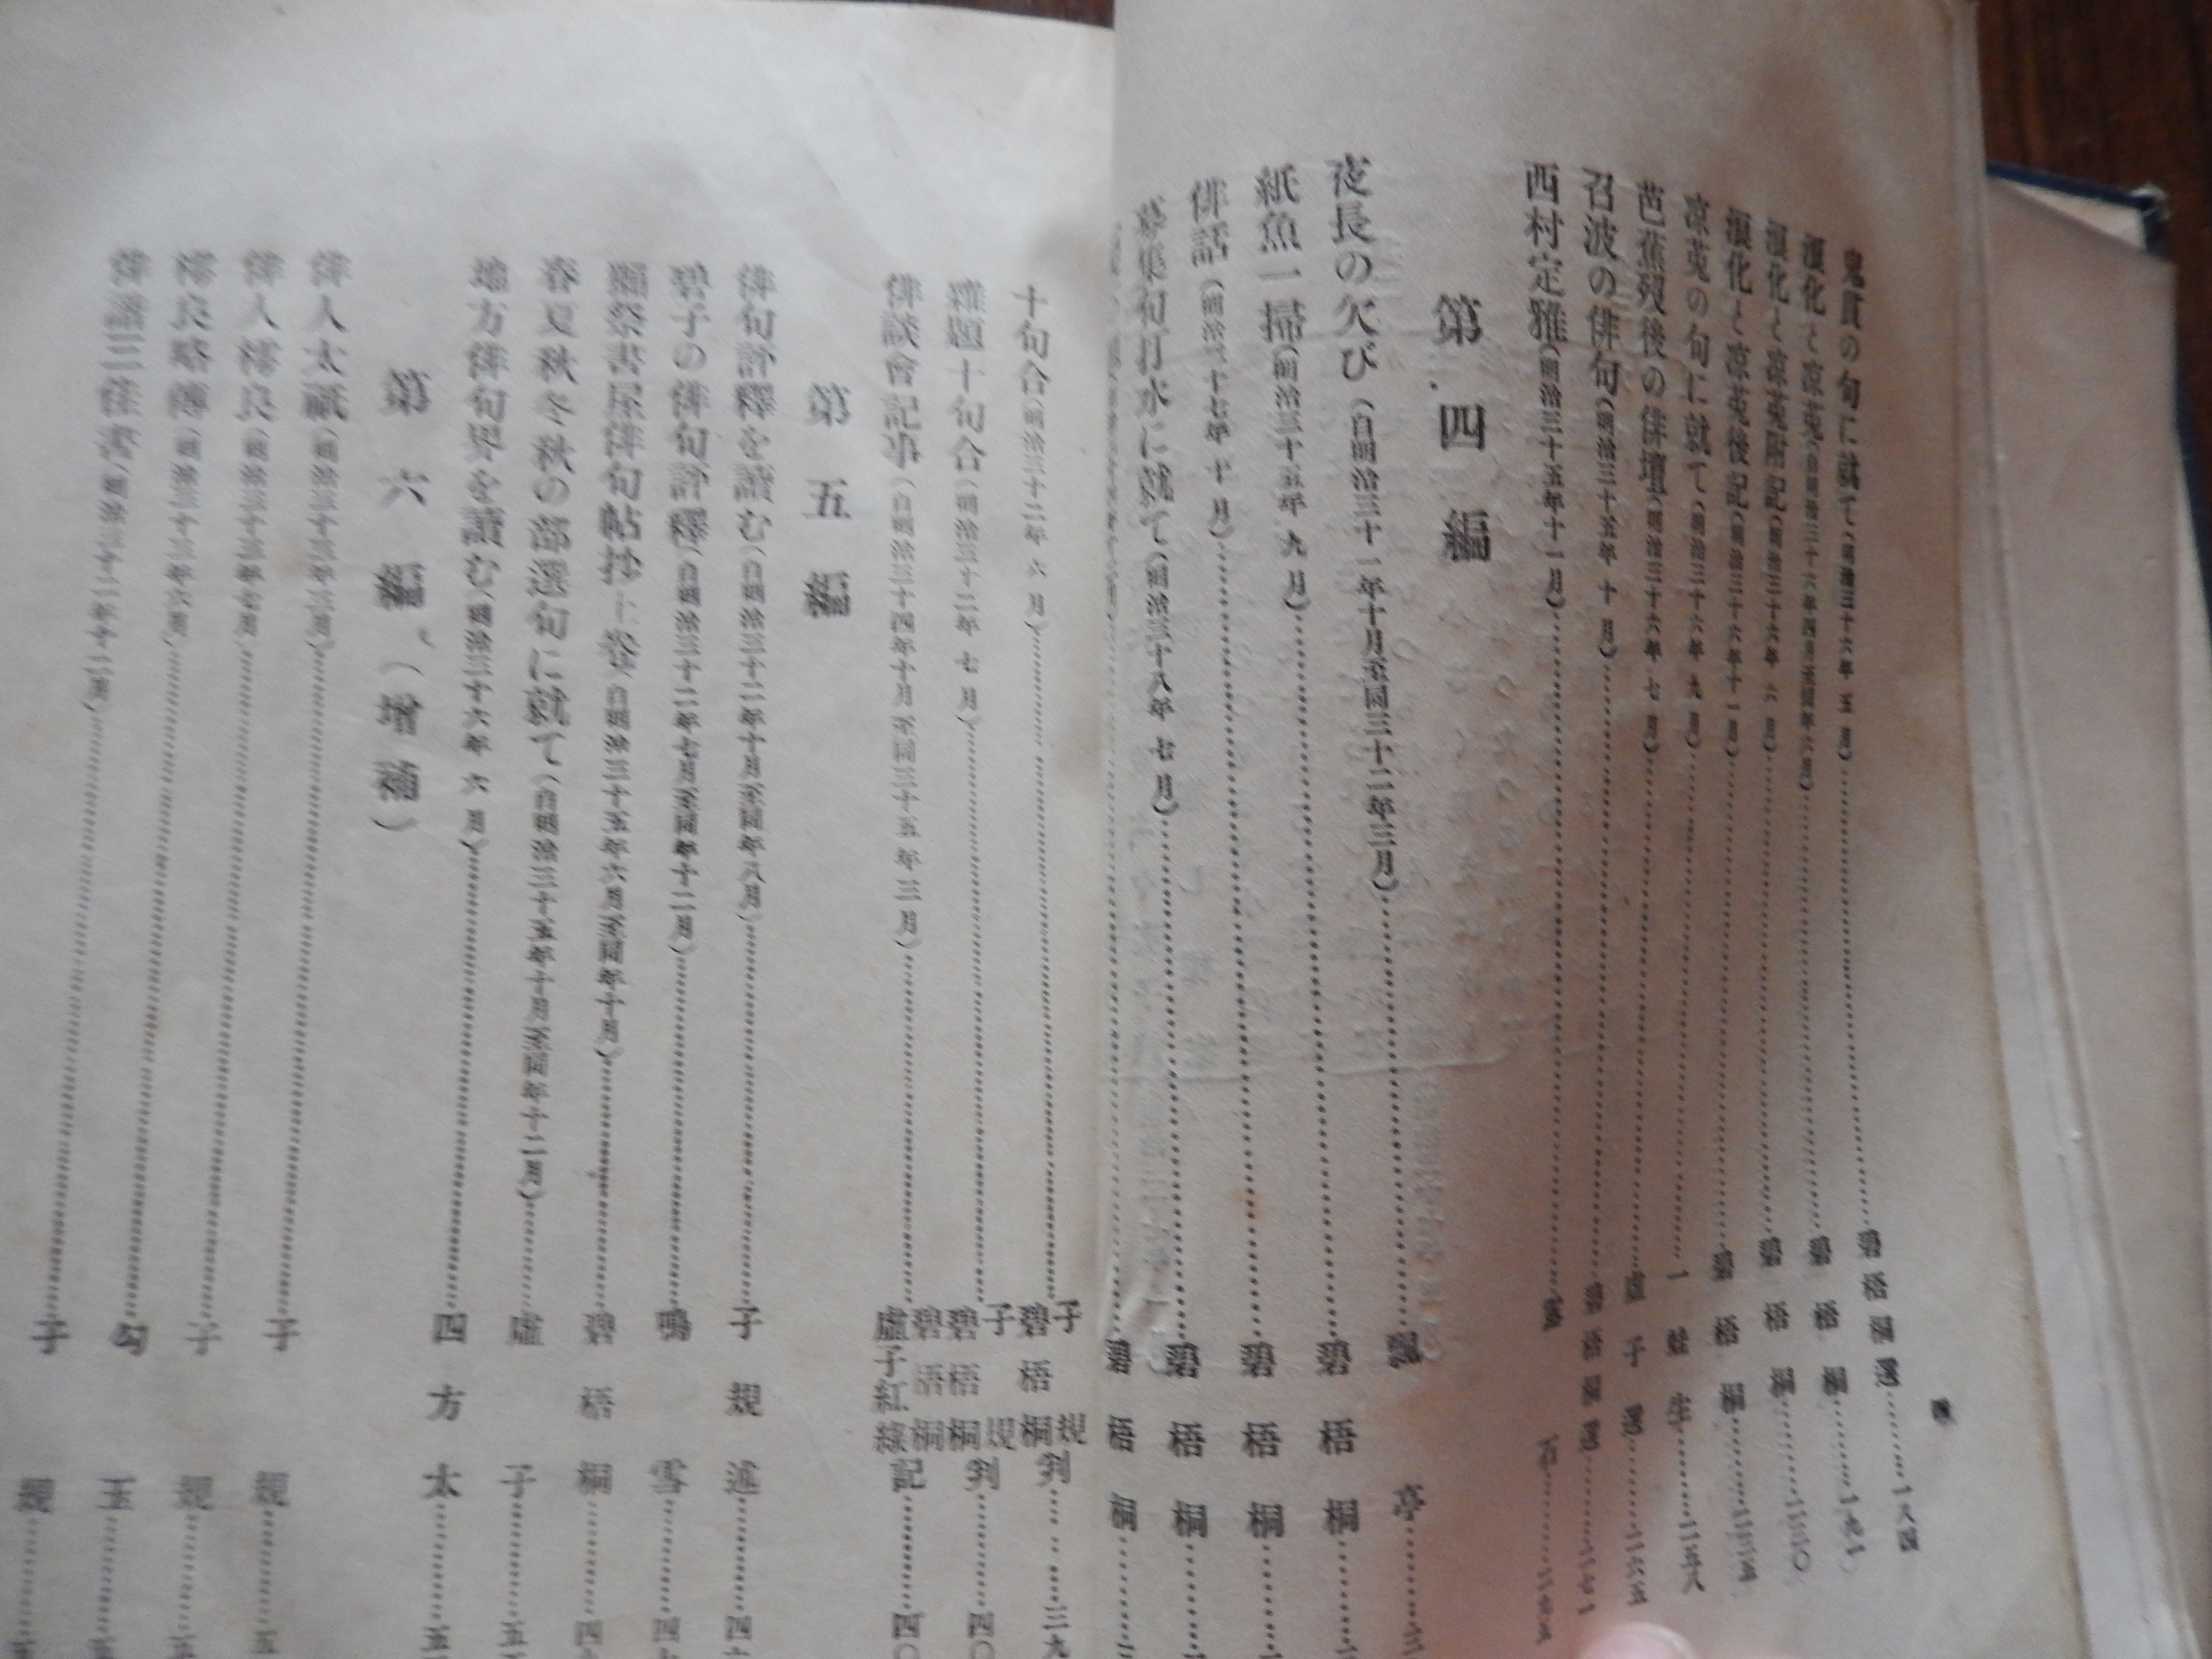 鬼貫の句に就て(明治三十六年五月)……碧梧桐選……一八四
浪化と凉菟(自明治三十六年四月至同年六月)……碧梧桐……一九一
浪化と凉菟附記(明治三十六年六月)……碧梧桐……二三〇
浪化と凉菟後記(明治三十六年十一月)……碧梧桐……二三五
凉菟の句に就て(明治三十六年九月)……一蛙生……二五八
芭蕉歿後の俳壇(明治三十六年七月)……虚子選……二六五
召波の俳句(明治三十五年十月)……碧梧桐選……二七一
西村定雅(明治三十五年十一月)……
第四編
夜長の欠び(自明治三十一年十月至同三十二年三月)……飄亭……三
紙魚一掃(明治三十五年九月)……碧梧桐……
俳話(明治三十七年十月)……碧梧桐……
募集句打水に就て(明治三十八年七月)……碧梧桐……
碧梧桐……
十句合(明治三十二年六月)……子規碧梧桐判……三九
雜題十句合(明治三十二年七月)……子規碧梧桐判……四〇
俳談會記事(自明治三十四年十月至同三十五年三月)……碧梧桐虚子紅綠記……四〇
第五編
俳句評釋を讀む(自明治三十二年十月至同年八月)……子規述……四
碧子の俳句評釋(自明治三十二年七月至同年十二月)……鳴雪……四
獺祭書屋俳句帖抄上卷(自明治三十五年六月至同年十月)……碧梧桐……四
春夏秋冬秋の部選句に就て(自明治三十五年十月至同年十二月)……虚子……五
地方俳句界を讀む(明治三十六年六月)……四方太……五
第六編(增補)
俳人太祇(明治三十三年三月)……子規……五
俳人樗良(明治三十三年七月)……子規……五
樗良略傳(明治三十三年六月)……勾玉……五
俳諧三佳書(明治三十二年十二月)……子規……五